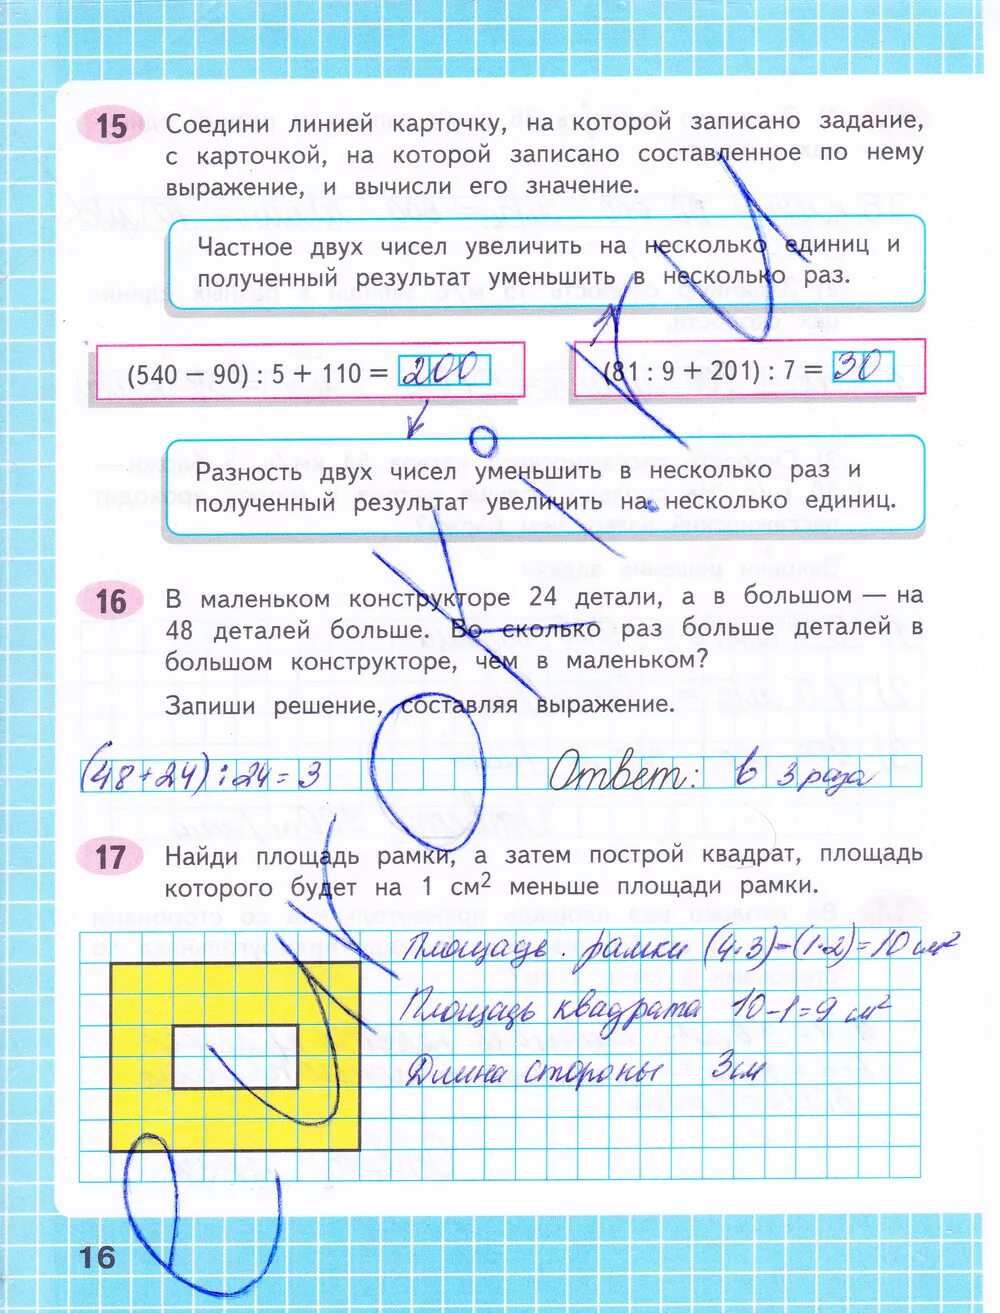 15 Соедини линией карточку, на которой записано задание,
с карточкой, на которой записано составленное по нему
выражение, и вычисли его значение.
Частное двух чисел увеличить на несколько единиц и
полученный результат уменьшить в несколько раз.
(540 − 90) : 5 + 110 = 200
(81 : 9 + 201) : 7 = 30
Разность двух чисел уменьшить в несколько раз и
полученный результат увеличить на несколько единиц.
16 В маленьком конструкторе 24 детали, а в большом — на
48 деталей больше. Во сколько раз больше деталей в
большом конструкторе, чем в маленьком?
Запиши решение, составляя выражение.
(48+24):24=3 Ответ: в 3 раза
17 Найди площадь рамки, а затем построй квадрат, площадь
которого будет на 1 см² меньше площади рамки.
Площадь рамки (4·3)-(1·2)=10 см²
Площадь квадрата 10-1=9 см²
Длина стороны 3см
16